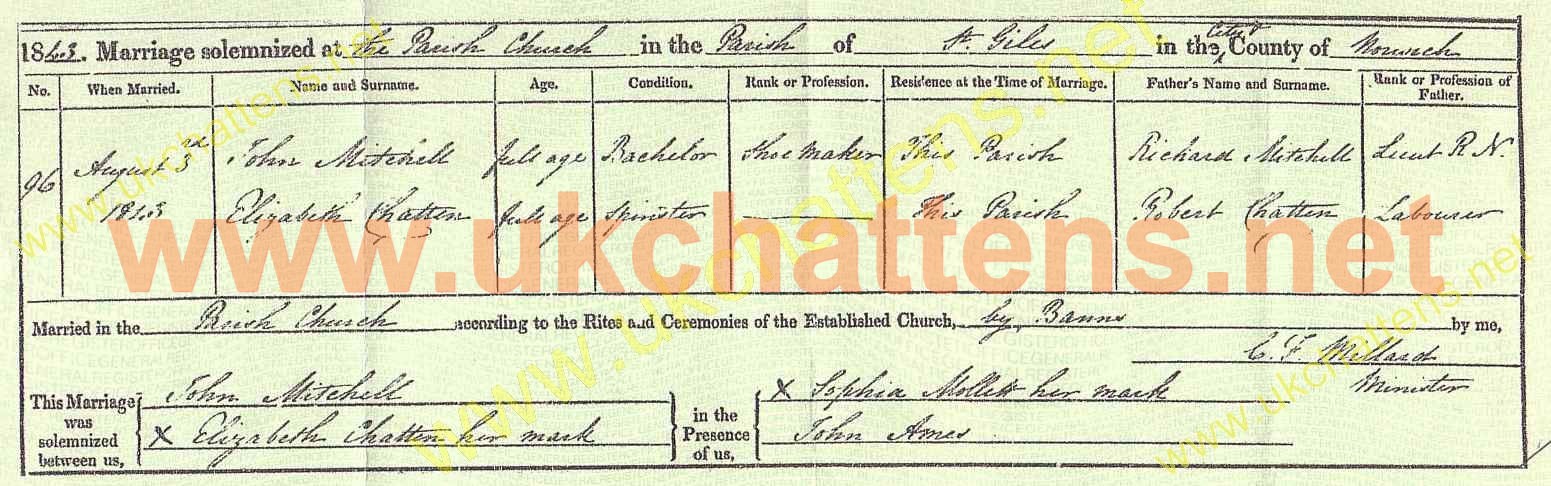 1843. Marriage solemnized at the Parish Church in the Parish of St. Giles in the City & County of Norwich
No. When Married. Name and Surname. Age. Condition. Rank or Profession. Residence at the Time of Marriage. Father's Name and Surname. Rank or Profession of Father.
96 August 3rd 1843 John Mitchell full age Bachelor Shoe maker This Parish Richard Mitchell Lieut R.N.
Elizabeth Chatten full age Spinster This Parish Robert Chatten Labourer
www.ukchattens.net
Married in the Parish Church according to the Rites and Ceremonies of the Established Church, by Banns by me,
C. F. Millard
Minister
This Marriage was solemnized between us, John Mitchell
X Elizabeth Chatten her mark
in the Presence of us, X Sophia Mollett her mark
John Ames
www.ukchattens.net
www.ukchattens.net
www.ukchattens.net